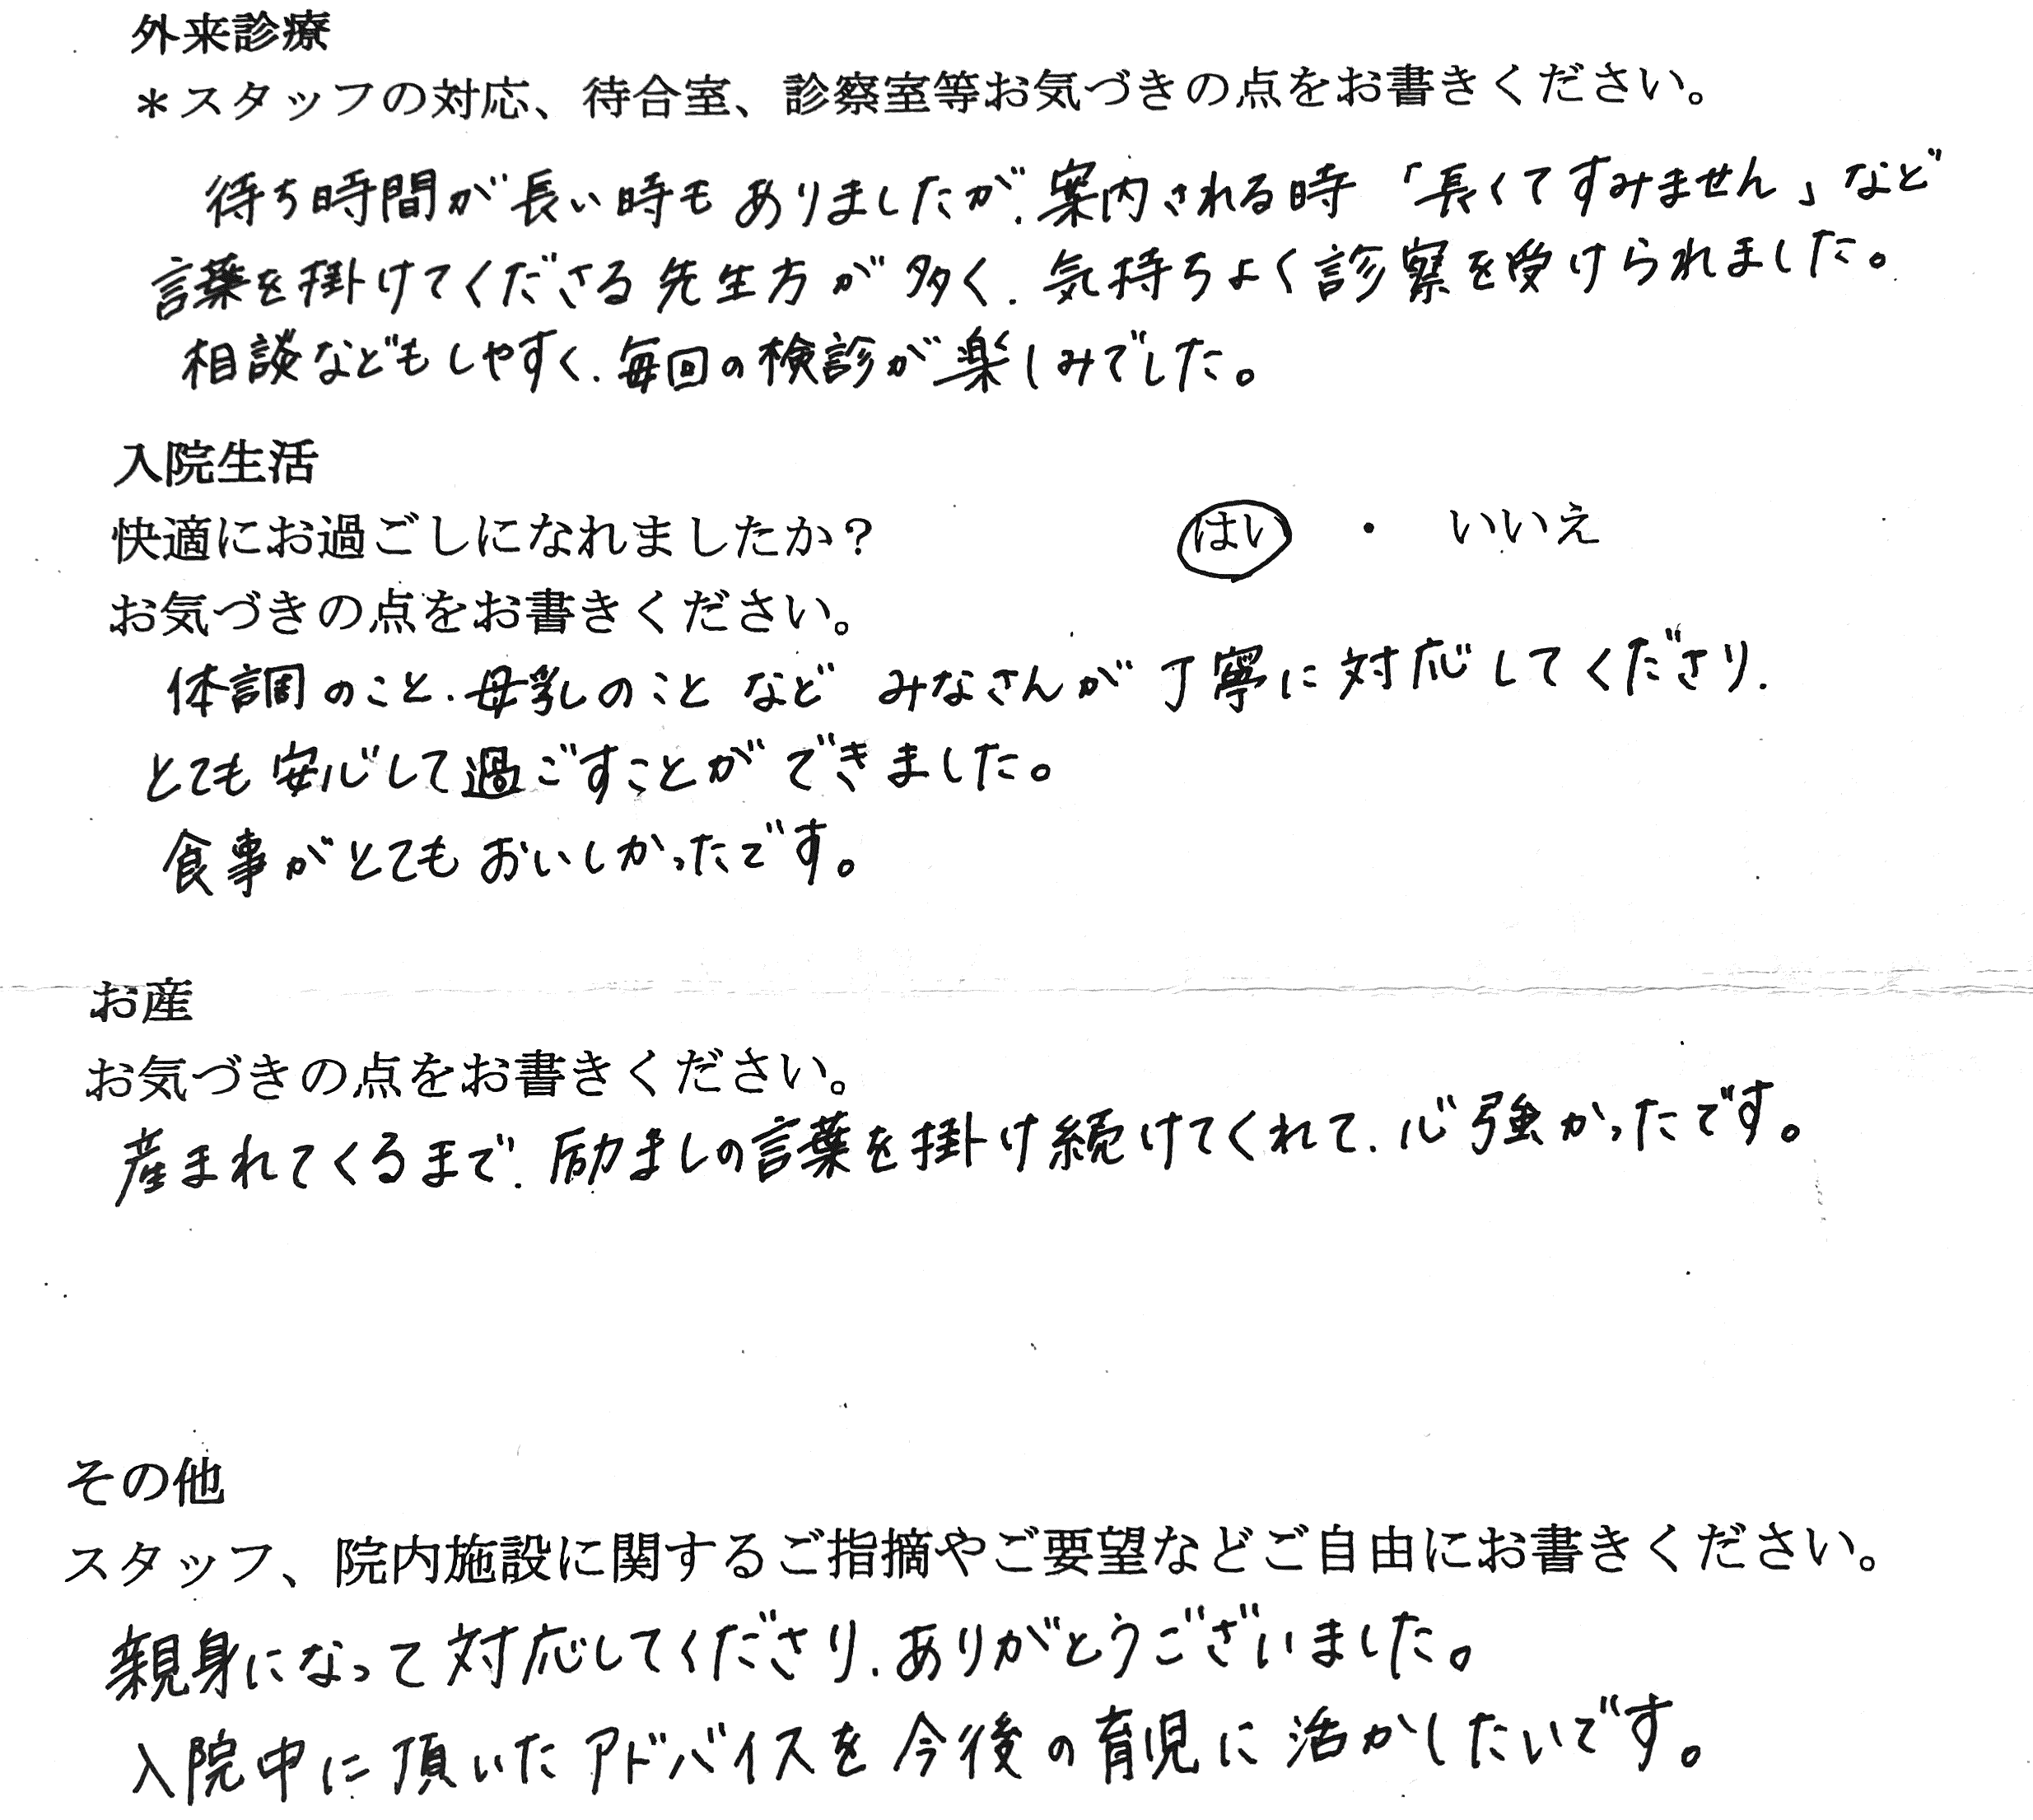 外来診療
＊スタッフの対応、待合室、診察室等お気づきの点をお書きください。
待ち時間が長い時もありましたが、案内される時「長くてすみません」など
言葉を掛けてくださる先生方が多く、気持ちよく診察を受けられました。
相談などもしやすく、毎回の検診が楽しみでした。
入院生活
快適にお過ごしになれましたか？ はい ・ いいえ
お気づきの点をお書きください。
体調のこと、母乳のことなど みなさんが丁寧に対応してくださり、
とても安心して過ごすことができました。
食事がとてもおいしかったです。
お産
お気づきの点をお書きください。
産まれてくるまで、励ましの言葉を掛け続けてくれて、心強かったです。
その他
スタッフ、院内施設に関するご指摘やご要望などご自由にお書きください。
親身になって対応してくださり、ありがとうございました。
入院中に頂いたアドバイスを今後の育児に活かしたいです。